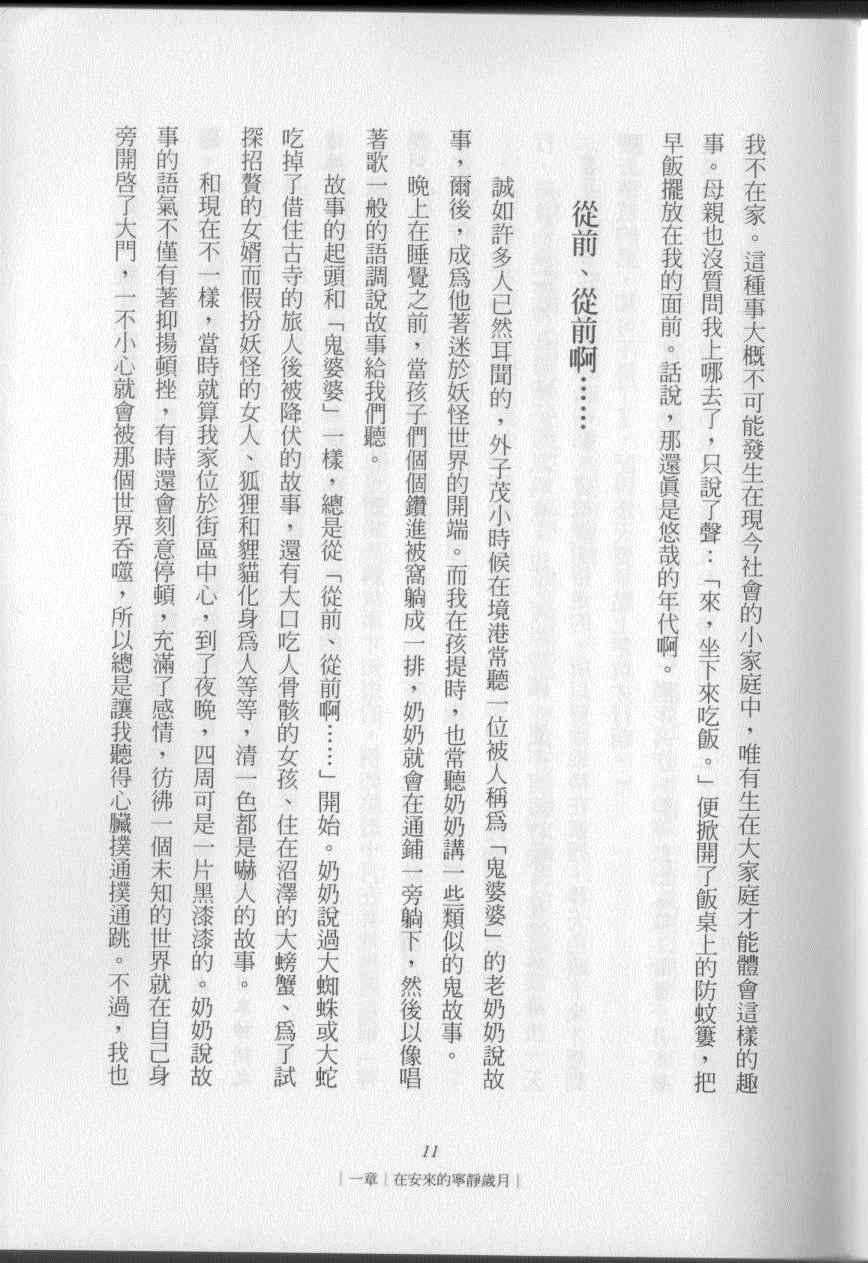 我不在家。這種事大概不可能發生在現今社會的小家庭中，唯有生在大家庭才能體會這樣的趣
事。母親也沒質問我上哪去了，只說了聲：「來，坐下來吃飯。」便掀開了飯桌上的防蚊簍，把
早飯擺放在我的面前。話說，那還眞是悠哉的年代啊。
從前、從前啊……
誠如許多人已然耳聞的，外子茂小時候在境港常聽一位被人稱爲「鬼婆婆」的老奶奶說故
事，爾後，成爲他著迷於妖怪世界的開端。而我在孩提時，也常聽奶奶講一些類似的鬼故事。
晚上在睡覺之前，當孩子們個個鑽進被窩躺成一排，奶奶就會在通鋪一旁躺下，然後以像唱
著歌一般的語調說故事給我們聽。
故事的起頭和「鬼婆婆」一樣，總是從「從前、從前啊……」開始。奶奶說過大蜘蛛或大蛇
吃掉了借住古寺的旅人後被降伏的故事，還有大口吃人骨骸的女孩、住在沼澤的大螃蟹、爲了試
探招贅的女婿而假扮妖怪的女人、狐狸和貍貓化身爲人等等，清一色都是嚇人的故事。
和現在不一樣，當時就算我家位於街區中心，到了夜晚，四周可是一片黑漆漆的。奶奶說故
事的語氣不僅有著抑揚頓挫，有時還會刻意停頓，充滿了感情，彷彿一個未知的世界就在自己身
旁開啓了大門，一不小心就會被那個世界吞噬，所以總是讓我聽得心臟撲通撲通跳。不過，我也
11
|一章|在安來的寧靜歲月|